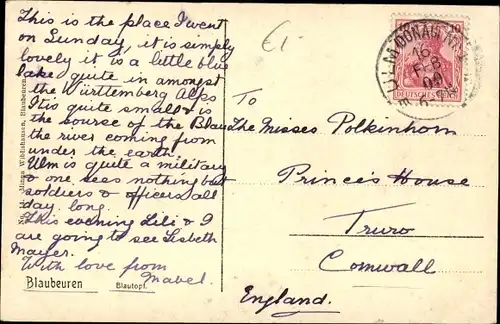 This is the place I went
on Sunday, it is simply
lovely it is a little blue
lake quite in amongst
the Württemberg Alps
It is quite small & is
the source of the Blau
the river coming from
under the earth.
Ulm is quite a military
& one sees nothing but
soldiers & officers all
day long.
This evening Lili & I
are going to see Lisbeth
Mayer.
With love from
Mabel.
Blaubeuren Blautopf.
Wildishausen, Blaubeuren
£1
ULM (DONAU)
16
FEB
09
10
DEUTSCHES REICH
To
The Misses Polkinhorn
Prince's House
Truro
Cornwall
England.